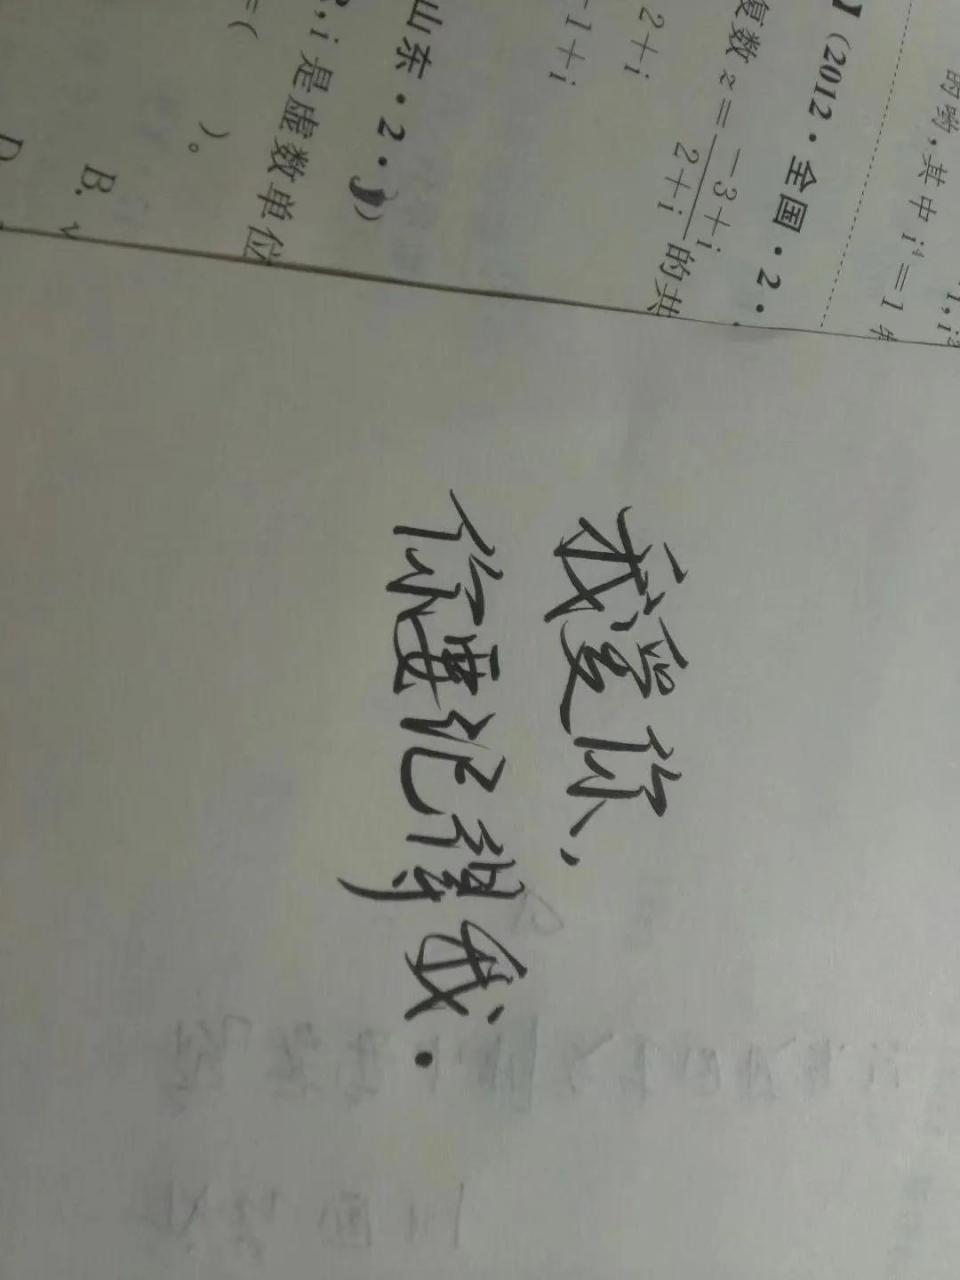 的哟，其中 i⁴=1
】（2012·全国·2·
复数 z = (-3+i)/(2+i) 的共
2+i
-1+i
山东·2·
，i 是虚数单位
=(
)。
B.
D
我爱你，
你要记得我.